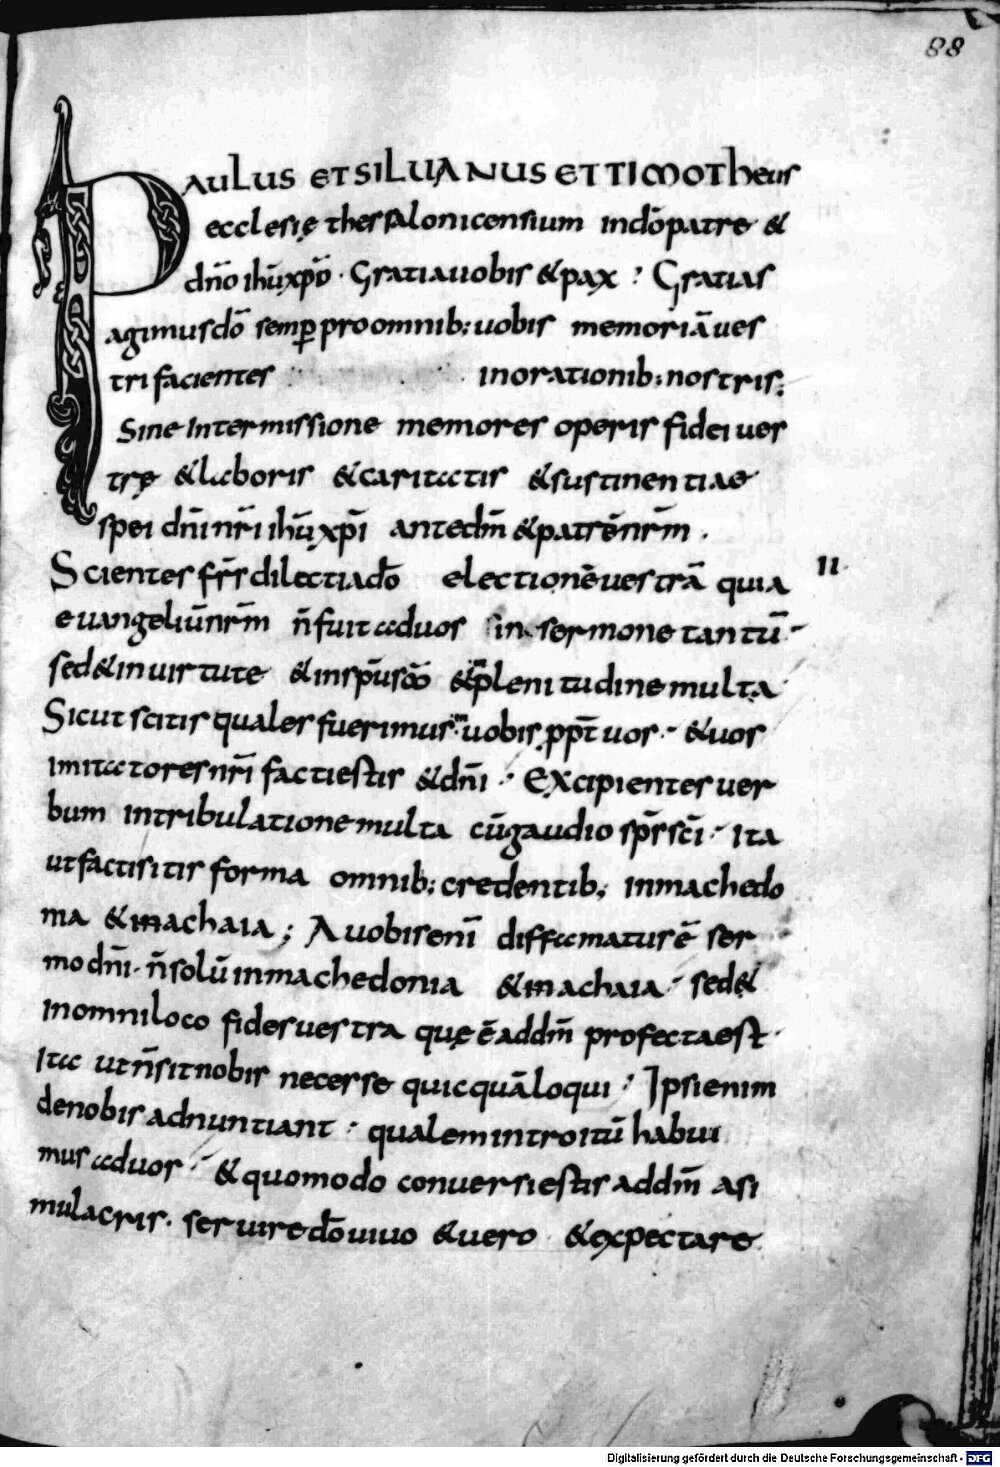 88
PAULUS ET SILUANUS ET TIMOTHEUS
ecclesię thessalonicensium in dō patre &
dn̄o ihū xp̄o · Gratia uobis & pax : Gratias
agimus dō semꝑ pro omnib; uobis memoriā ues
tri facientes in orationib; nostris;
Sine intermissione memores operis fidei ues
trę & laboris & caritatis & sustinentiae
spei dn̄i nr̄i ihū xpī ante dm̄ & patrē nr̄m .
Scientes fr̄s dilecti a dō electionē uestrā quia II.
euangeliū nr̄m n̄ fuit ad uos in sermone tantū
sed & in uirtute & in sp̄u sc̄o & in plenitudine multa
Sicut scitis quales fuerimus in uobis ppt̄ uos · & uos
imitatores nr̄i facti estis & dn̄i · Excipientes uer
bum in tribulatione multa cū gaudio sp̄s sc̄i · Ita
ut facti sitis forma omnib; credentib; in machedo
nia & in achaia ; A uobis enī diffamatus ē ser
mo dn̄i · n̄ solū in machedonia & in achaia · sed &
in omni loco fides uestra quę ē ad dm̄ profecta est ·
Ita ut n̄ sit nobis necesse quicquā loqui : Ipsi enim
de nobis adnuntiant · qualem introitū habui
mus ad uos · & quomodo conuersi estis ad dm̄ a si
mulacris · seruire dō uiuo & uero & expectare
Digitalisierung gefördert durch die Deutsche Forschungsgemeinschaft - DFG